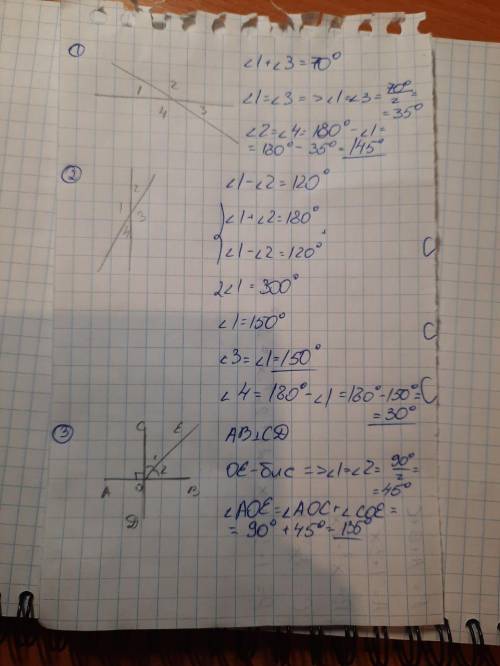 1
1 2 3 4
∠1+∠3=70°
∠1=∠3=>∠1=∠3=70°/2=
=35°
∠2=∠4=180°-∠1=
=180°-35°=145°
2
1 2 3 4
∠1-∠2=120°
∠1+∠2=180°
∠1-∠2=120°
2∠1=300°
∠1=150°
∠3=∠1=150°
∠4=180°-∠1=180°-150°=
=30°
3
C E
1 2
A O B
D
AB⊥CD
OE-бис =>∠1=∠2=90°/2=
=45°
∠AOE=∠AOC+∠COE=
=90°+45°=135°